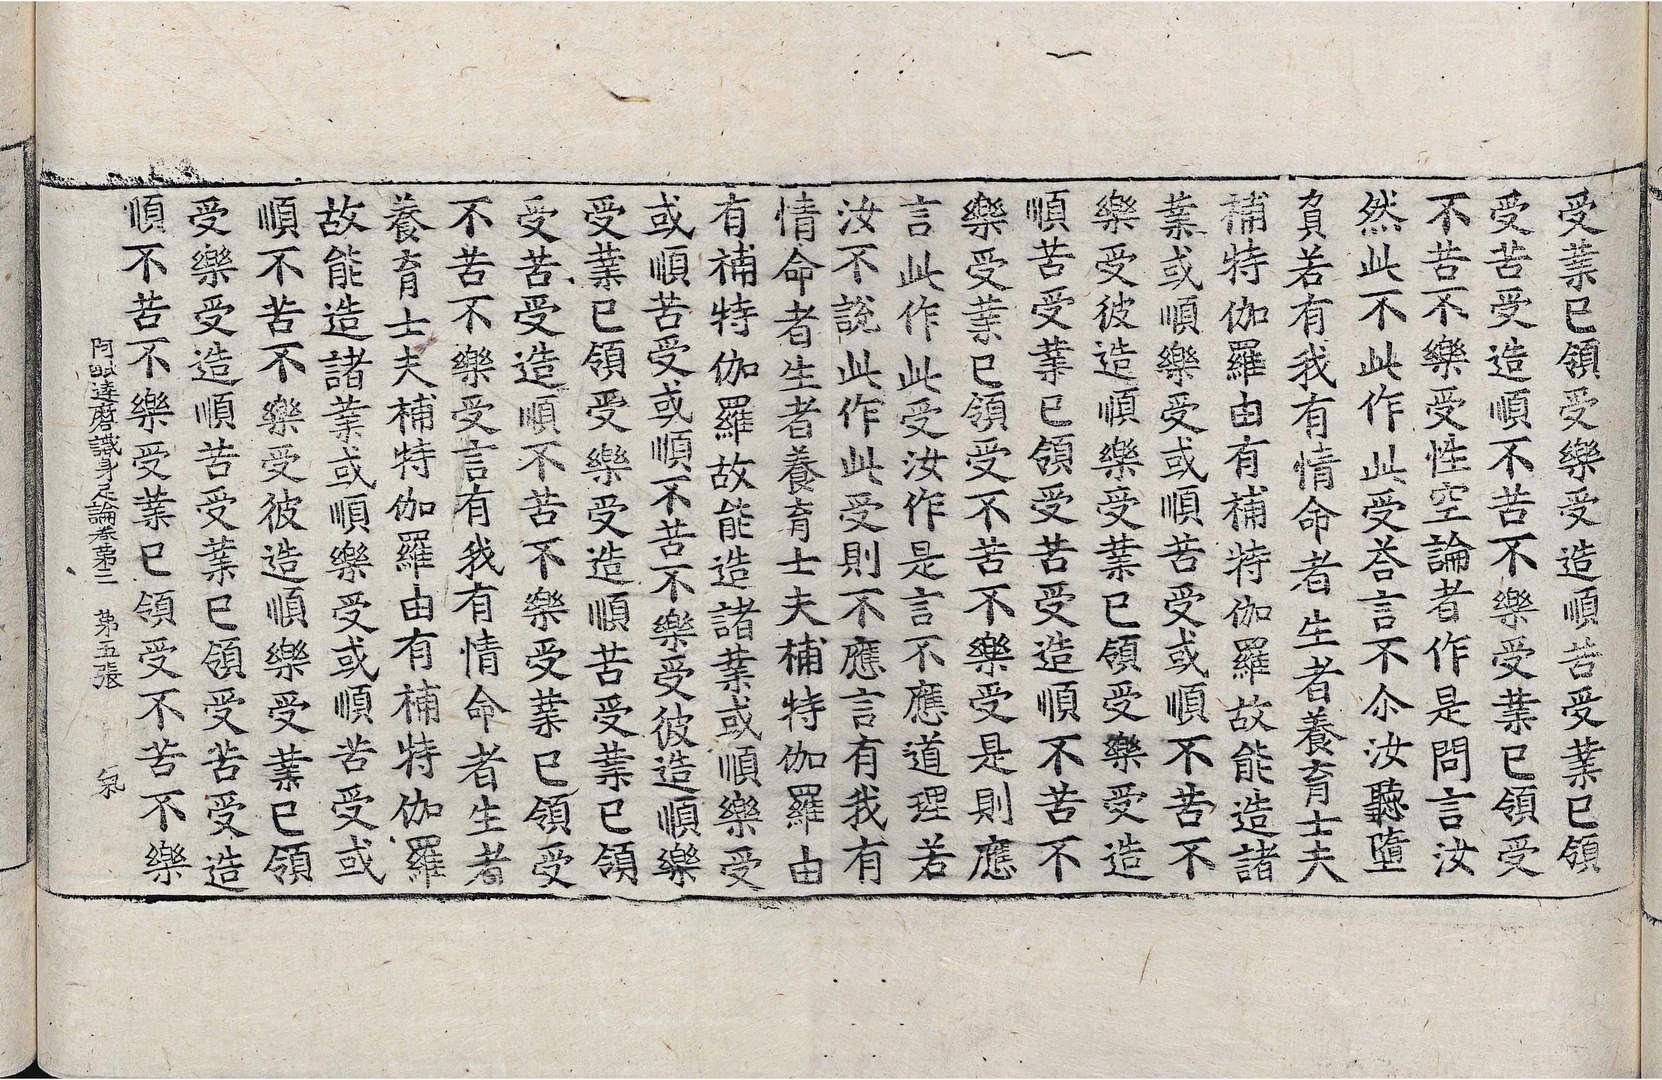 受業已領受樂受造順苦受業已領
受苦受造順不苦不樂受業已領受
不苦不樂受性空論者作是問言汝
然此不此作此受荅言不尒汝聽墮
負若有我有情命者生者養育士夫
補特伽羅由有補特伽羅故能造諸
業或順樂受或順苦受或順不苦不
樂受彼造順樂受業已領受樂受造
順苦受業已領受苦受造順不苦不
樂受業已領受不苦不樂受是則應
言此作此受汝作是言不應道理若
汝不說此作此受則不應言有我有
情命者生者養育士夫補特伽羅由
有補特伽羅故能造諸業或順樂受
或順苦受或順不苦不樂受彼造順樂
受業已領受樂受造順苦受業已領
受苦受造順不苦不樂受業已領受
不苦不樂受言有我有情命者生者
養育士夫補特伽羅由有補特伽羅
故能造諸業或順樂受或順苦受或
順不苦不樂受彼造順樂受業已領
受樂受造順苦受業已領受苦受造
順不苦不樂受業已領受不苦不樂
阿毗達磨識身足論卷第三 第五張 氣